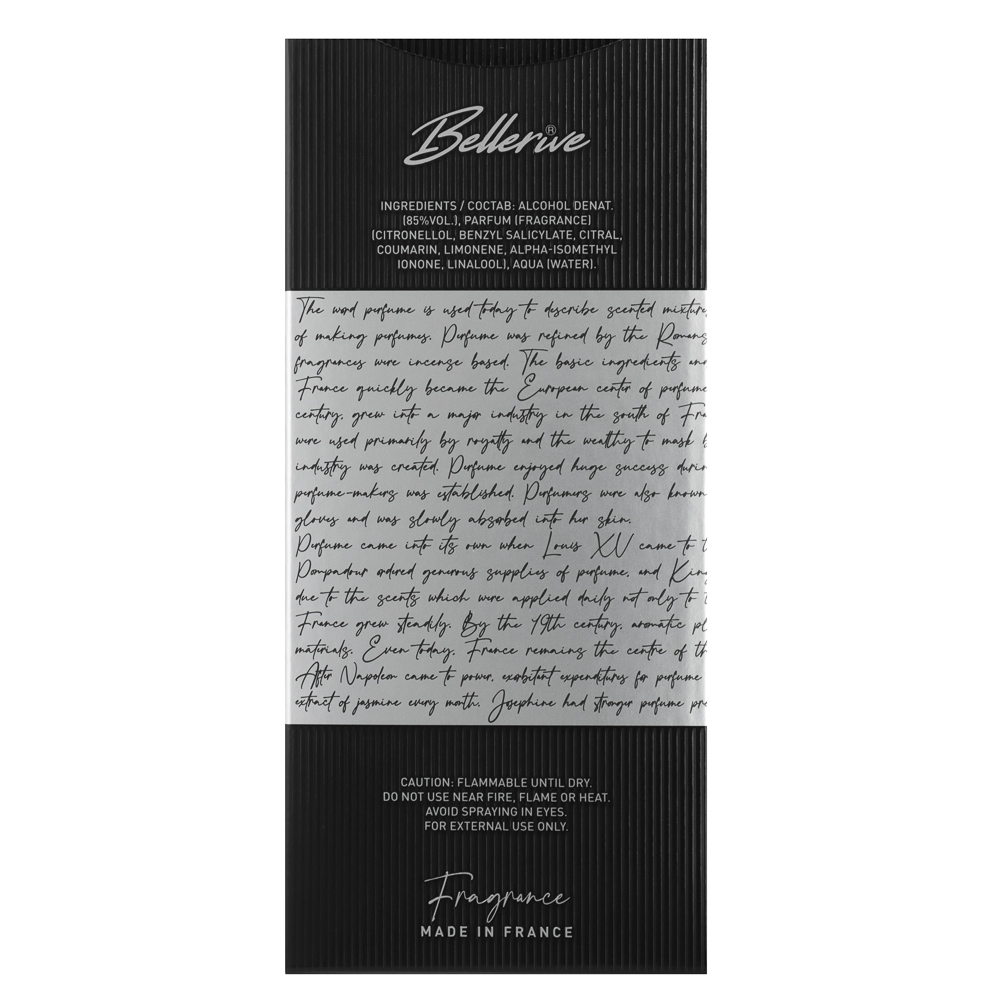 Bellerive®
INGREDIENTS / СОСТАВ: ALCOHOL DENAT.
(85%VOL.), PARFUM (FRAGRANCE)
(CITRONELLOL, BENZYL SALICYLATE, CITRAL,
COUMARIN, LIMONENE, ALPHA-ISOMETHYL
IONONE, LINALOOL), AQUA (WATER).
The word perfume is used today to describe scented mixture
of making perfumes. Perfume was refined by the Romans
fragrances were incense based. The basic ingredients and
France quickly became the European center of perfume
century, grew into a major industry in the south of Fra
were used primarily by royalty and the wealthy to mask b
industry was created. Perfume enjoyed huge success durin
perfume-makers was established. Perfumers were also known
gloves and was slowly absorbed into her skin.
Perfume came into its own when Louis XV came to t
Pompadour ordered generous supplies of perfume, and King
due to the scents which were applied daily not only to t
France grew steadily. By the 19th century, aromatic pl
materials. Even today, France remains the centre of th
After Napoleon came to power, exorbitant expenditures for perfume
extract of jasmine every month. Josephine had stronger perfume pre
CAUTION: FLAMMABLE UNTIL DRY.
DO NOT USE NEAR FIRE, FLAME OR HEAT.
AVOID SPRAYING IN EYES.
FOR EXTERNAL USE ONLY.
Fragrance
MADE IN FRANCE